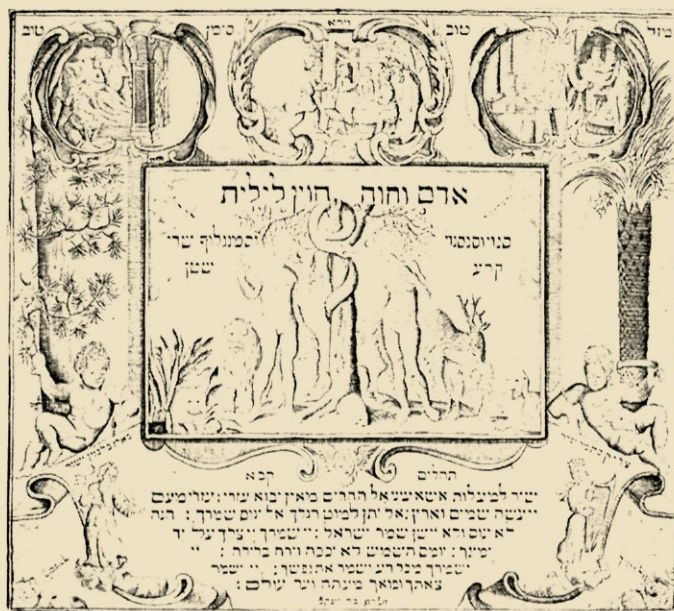 מזל טוב סימן טוב
אדם וחוה חוץ לילית
סנוי וסנסנוי וסמנגליף שרי
קרע שטן
תהלים קכא
שיר למעלות אשא עיני אל ההרים מאין יבוא עזרי : עזרי מעם
יי עשה שמים וארץ : אל יתן למוט רגלך אל ינום שמרך : הנה
לא ינום ולא יישן שמר ישראל : יי שמרך יי צלך על יד
ימינך : יומם השמש לא יככה וירח בלילה : יי
ישמרך מכל רע ישמר את נפשך : יי ישמר
צאתך ובואך מעתה ועד עולם :